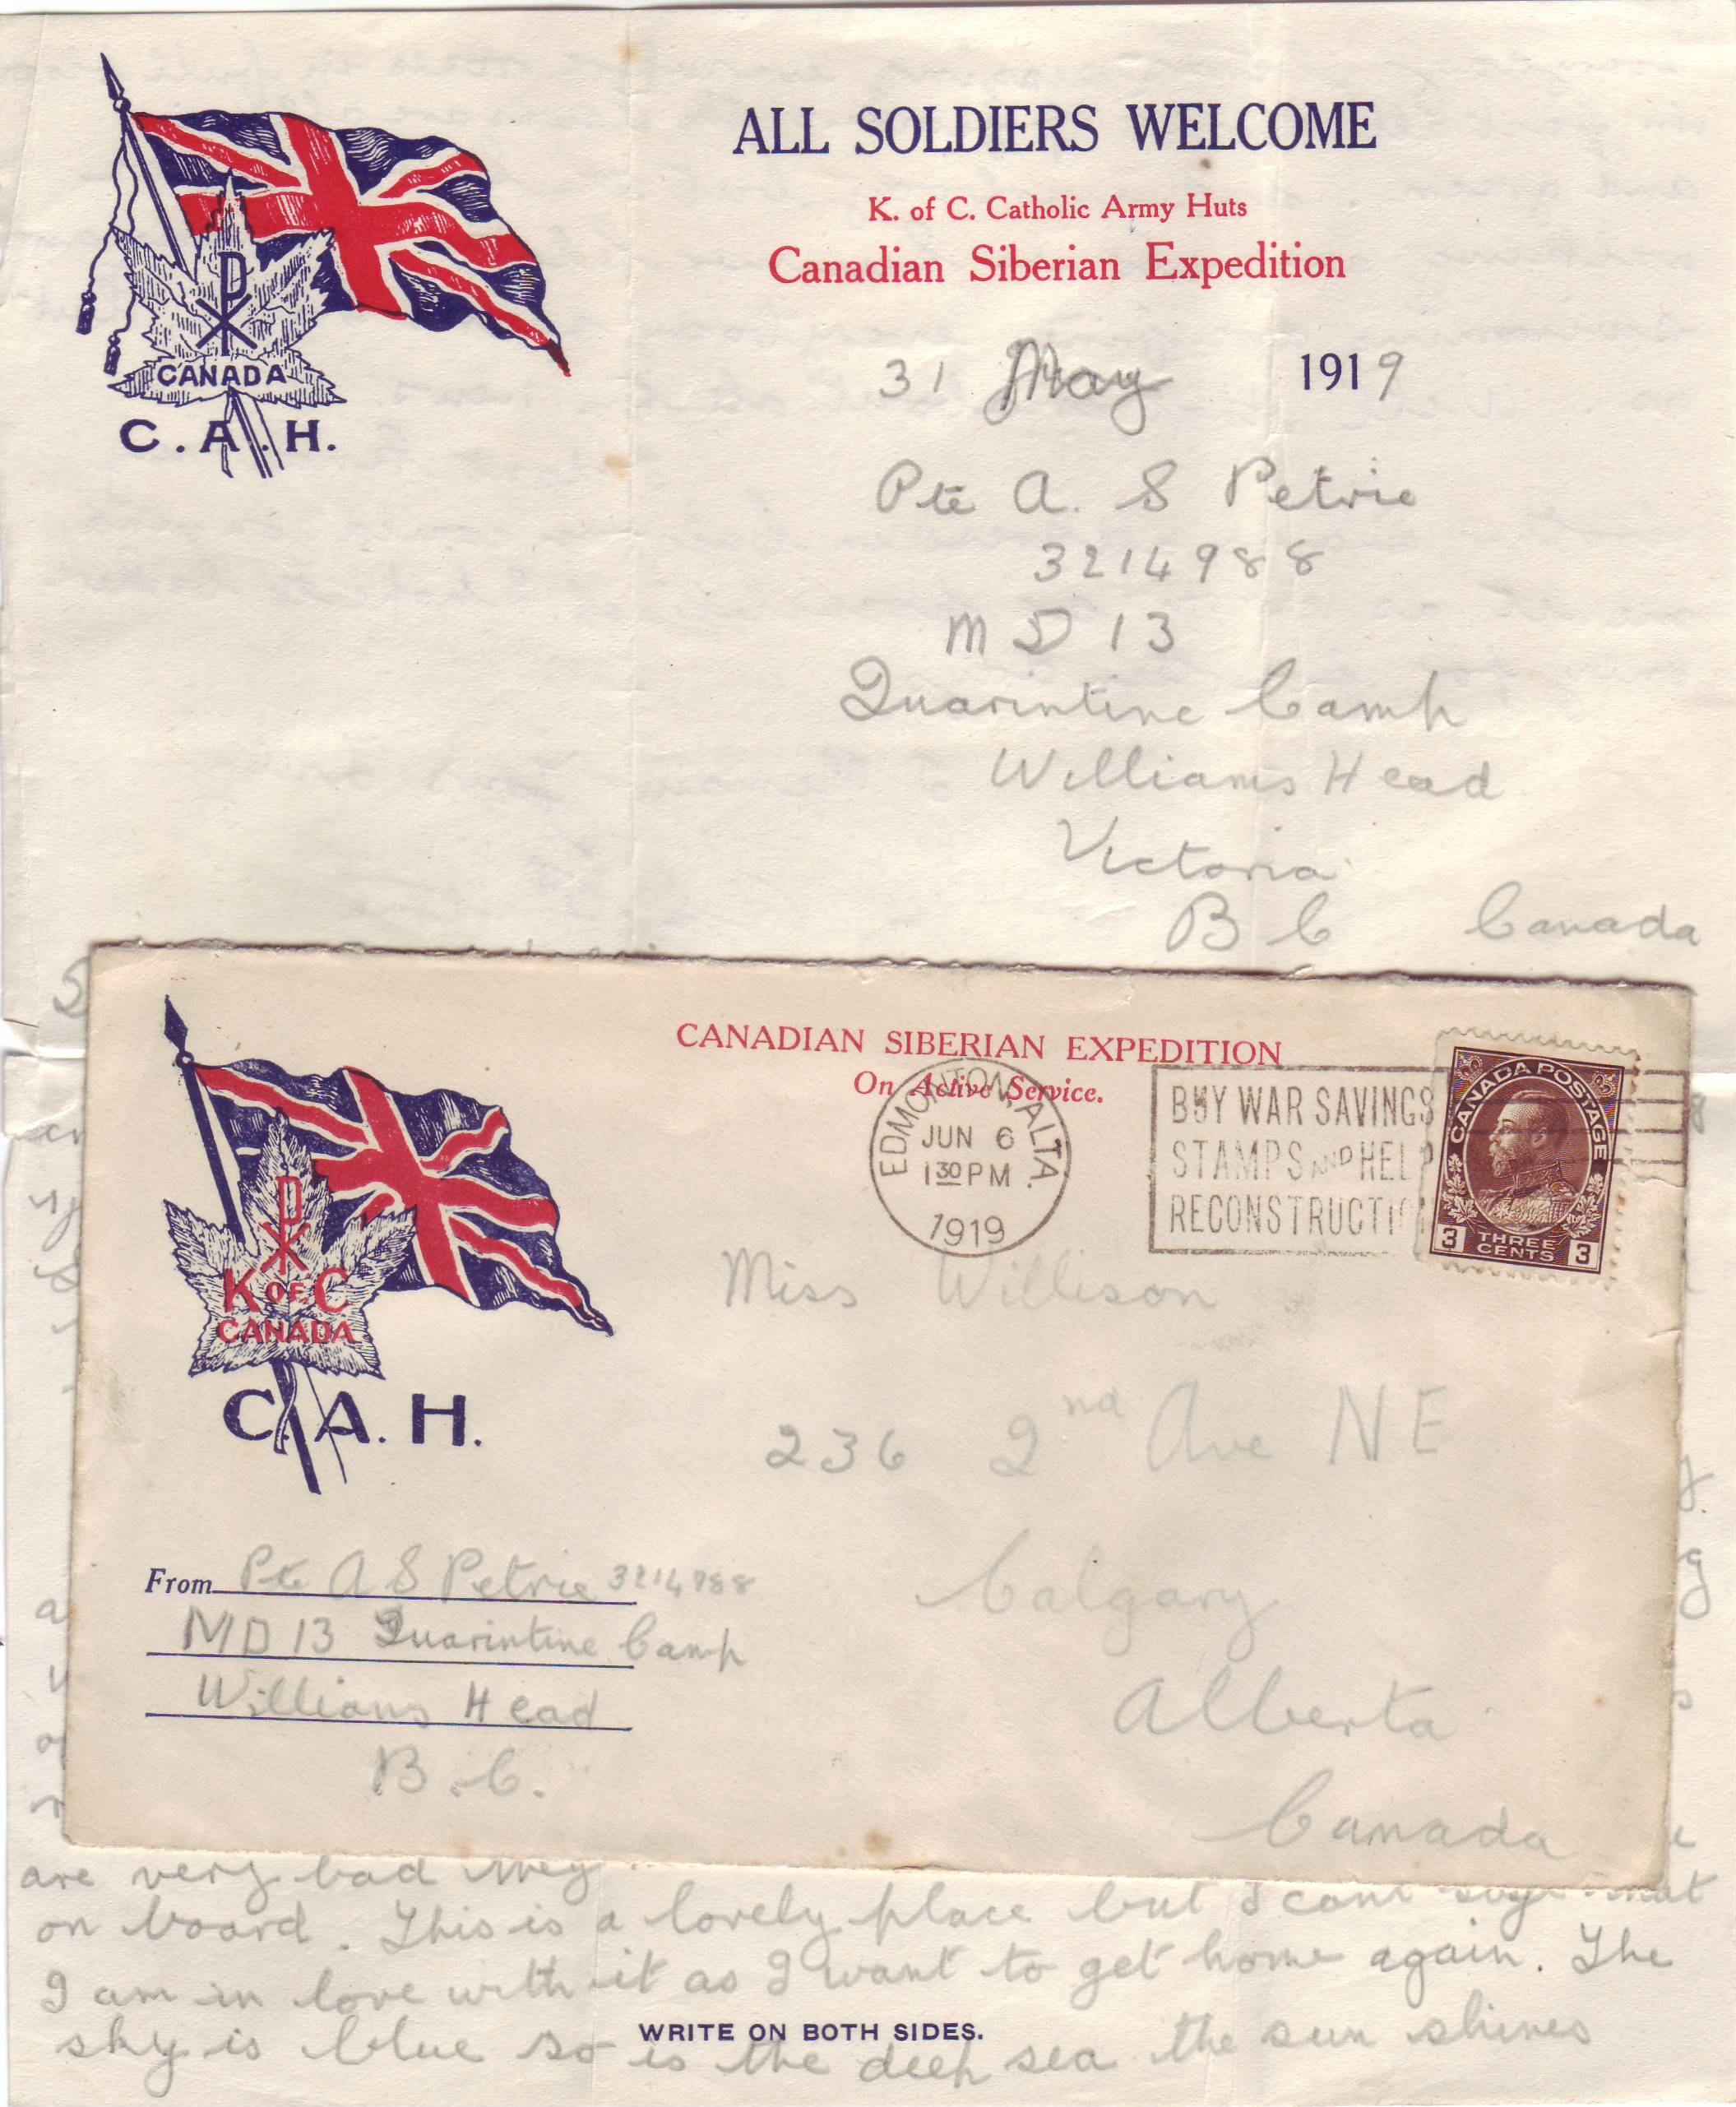 ALL SOLDIERS WELCOME
K. of C. Catholic Army Huts
Canadian Siberian Expedition
CANADA
C. A. H.
31 May 1919
Pte A. S Petrie
3214988
M D 13
Quarintine Camp
Williams Head
Victoria
B C Canada
CANADIAN SIBERIAN EXPEDITION
On Active Service.
EDMONTON, ALTA.
JUN 6
1 30 PM
1919
BUY WAR SAVINGS
STAMPS AND HELP
RECONSTRUCTI
CANADA POSTAGE
3 THREE CENTS 3
K OF C
CANADA
C. A. H.
Miss Willison
236 2nd Ave NE
Calgary
Alberta
Canada
From Pte A S Petrie 3214988
MD 13 Quarintine Camp
Williams Head
B.C.
are very bad they
on board. This is a lovely place but I cant say that
I am in love with it as I want to get home again. The
sky is blue so is the deep sea the sun shines
WRITE ON BOTH SIDES.